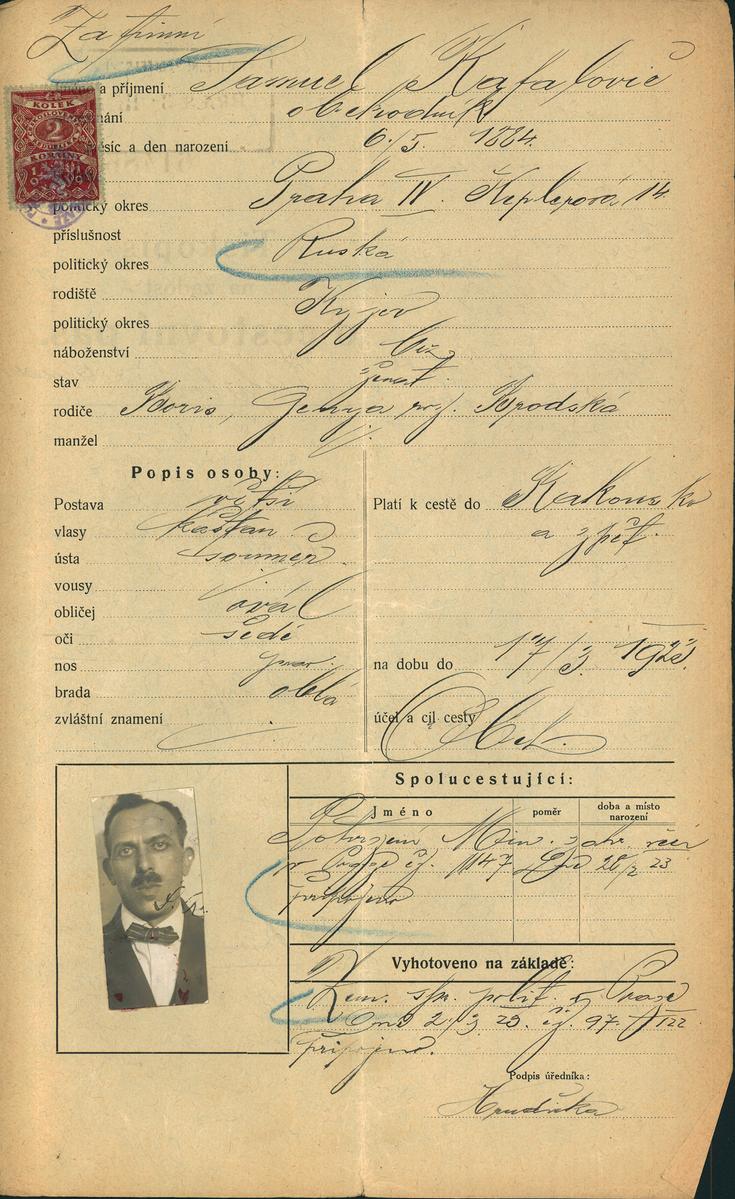 Zatímní
a příjmení Samuel Rafalovič
obchodník
měsíc a den narození 6/5. 1884.
KOLEK
2
KORUNY
politický okres Praha IV. Keplerova 14.
příslušnost
politický okres Ruská
rodiště
politický okres Kyjev
náboženství
stav ženat.
rodiče Boris, Genya roz. Brodská
manžel
Popis osoby:
Postava větší
vlasy kaštan.
ústa souměr.
vousy
obličej ovál
oči šedé
nos
brada oblá
zvláštní znamení
Platí k cestě do Rakouska
a zpět.
na dobu do 17/3. 1923.
účel a cíl cesty Obch.
Spolucestující:
Jméno poměr doba a místo narození
Potvrzení Min. zahr. věcí
v Praze čj. 1147 Dne 28/2 23
připojeno
Vyhotoveno na základě:
Zem. spr. polit. v Praze
Dne 2/3 23. čj. 97
připojeno.
Podpis úředníka:
Hrudička